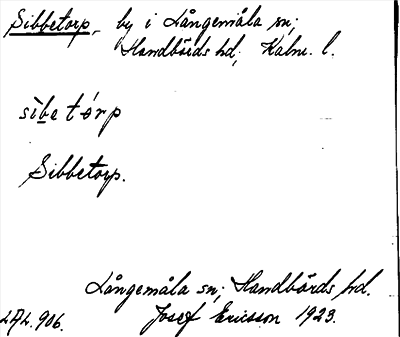 Sibbetorp, by i Långemåla sn;
Handbörds hd, Kalm. l.
sìbe tórp
Sibbetorp.
Långemåla sn; Handbörds hd.
LAL. 906. Josef Ericsson 1923.